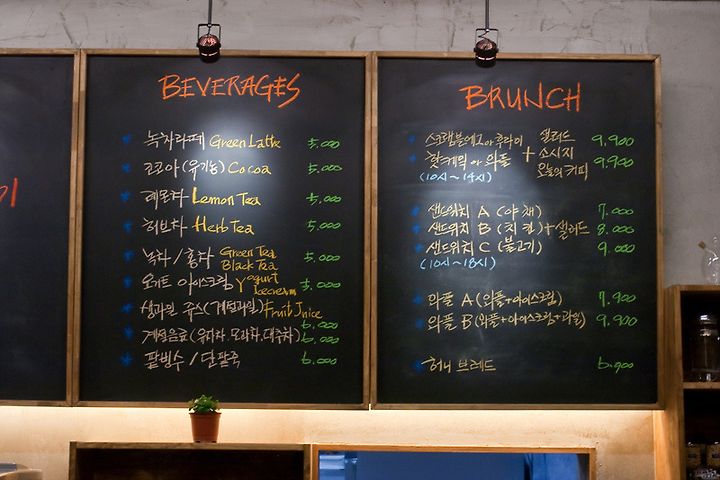 BEVERAGES
녹차라떼 Green Latte 5,000
코코아 (유기농) Cocoa 5,000
레몬차 Lemon Tea 5,000
허브차 Herb Tea 5,000
녹차 / 홍차 Green Tea Black Tea 5,000
요거트 아이스크림 Yogurt Icecream 5,000
생과일 쥬스 (계절과일) Fruit Juice 6,000
계절음료 (유자차, 모과차, 대추차) 6,000
팥빙수 / 단팥죽 6,000
BRUNCH
스크램블에그 or 후라이 9,900
핫케익 or 와플 9,900
+ 샐러드 소시지 오늘의 커피
(10시~14시)
샌드위치 A (야채) 7,000
샌드위치 B (치킨) + 샐러드 8,000
샌드위치 C (불고기) 9,000
(10시~18시)
와플 A (와플+아이스크림) 7,900
와플 B (와플+아이스크림+과일) 9,900
허니 브레드 6,900